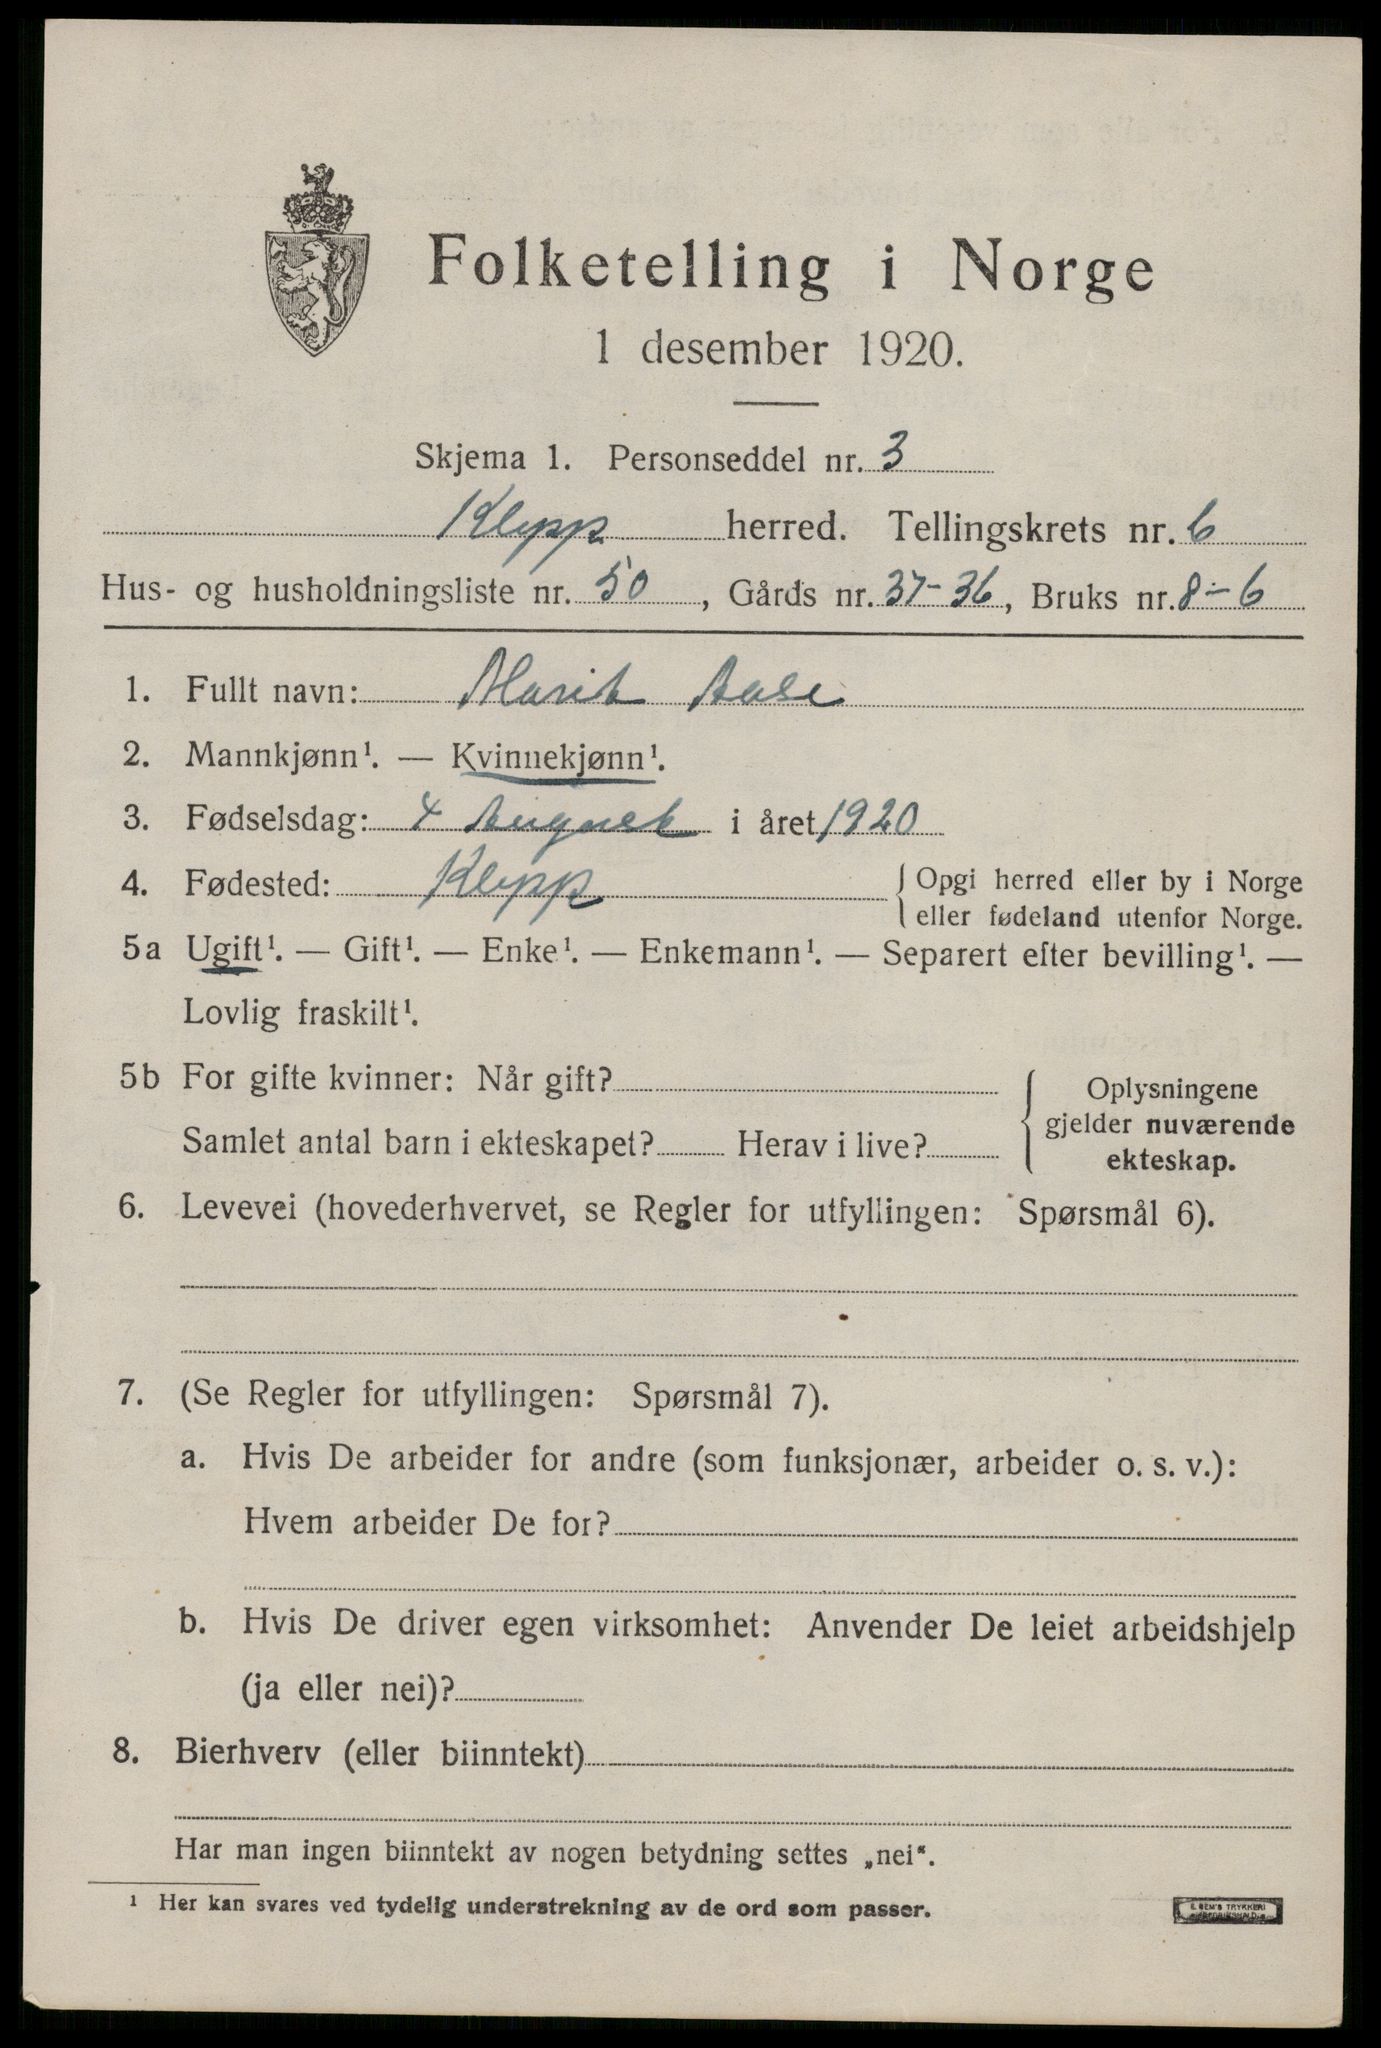 Folketelling i Norge
1 desember 1920.
Skjema 1. Personseddel nr. 3
Klepp herred. Tellingskrets nr. 6
Hus- og husholdningsliste nr. 50, Gårds nr. 37-36, Bruks nr. 8-6
1. Fullt navn: Marit Aase
2. Mannkjønn¹. — Kvinnekjønn¹.
3. Fødselsdag: 4 August i året 1920
4. Fødested: Klepp { Opgi herred eller by i Norge
eller fødeland utenfor Norge.
5a Ugift¹. — Gift¹. — Enke¹. — Enkemann¹. — Separert efter bevilling¹. —
Lovlig fraskilt¹.
5b For gifte kvinner: Når gift?
Samlet antal barn i ekteskapet? Herav i live?
{ Oplysningene
gjelder nuværende
ekteskap.
6. Levevei (hovederhvervet, se Regler for utfyllingen: Spørsmål 6).
7. (Se Regler for utfyllingen: Spørsmål 7).
a. Hvis De arbeider for andre (som funksjonær, arbeider o. s. v.):
Hvem arbeider De for?
b. Hvis De driver egen virksomhet: Anvender De leiet arbeidshjelp
(ja eller nei)?
8. Bierhverv (eller biinntekt)
Har man ingen biinntekt av nogen betydning settes „nei“.
¹ Her kan svares ved tydelig understrekning av de ord som passer.
E. SEM'S TRYKKERI
FREDRIKSHALD